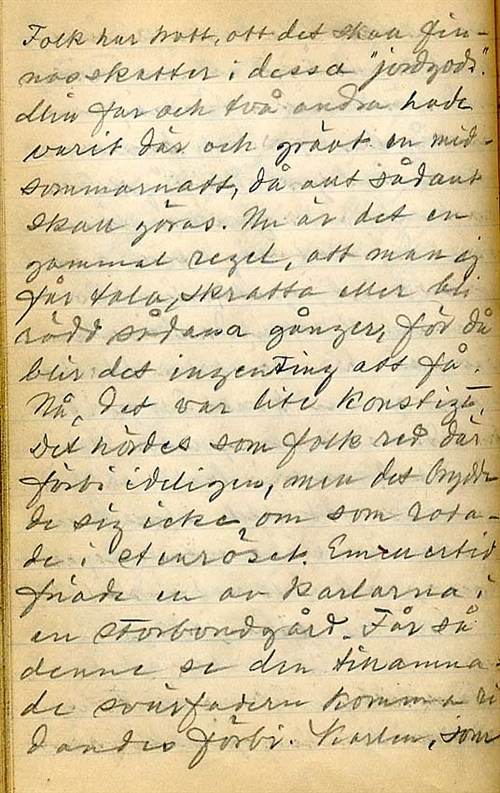 Folk har trott, att det skall fin-
nas skatter i dessa "jordgods".
Min far och två andra hade
varit där och grävt en mid-
sommarnatt, då allt sådant
skall göras. Nu är det en
gammal regel, att man ej
får tala, skratta eller bli
rädd sådana gånger, för då
blir det ingenting att få.
Nå, det var lite konstigt.
Det hördes som folk red där
förbi ideligen, men det brydde
de sig icke om som rota-
de i stenröset. Emellertid
friade en av karlarna i
en storbondgård. Får så
denne se den tillämna-
de svärfadern komma ri-
dandes förbi. Karlen, som